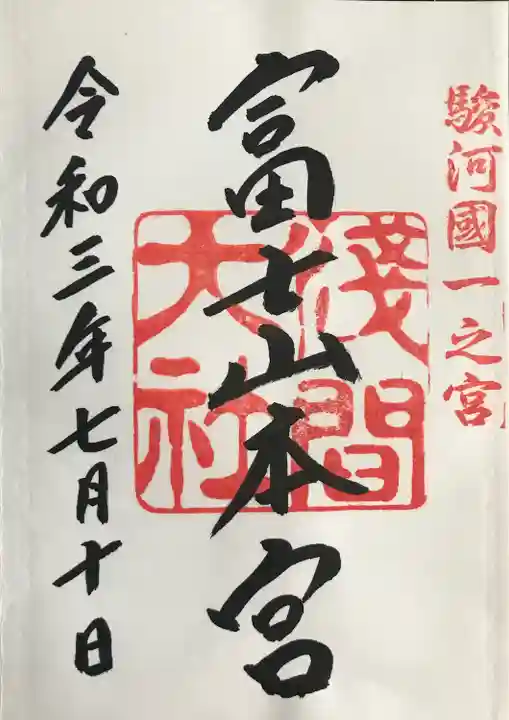 駿河國一之宮
富士山本宮
淺間
大社
令和三年七月十日